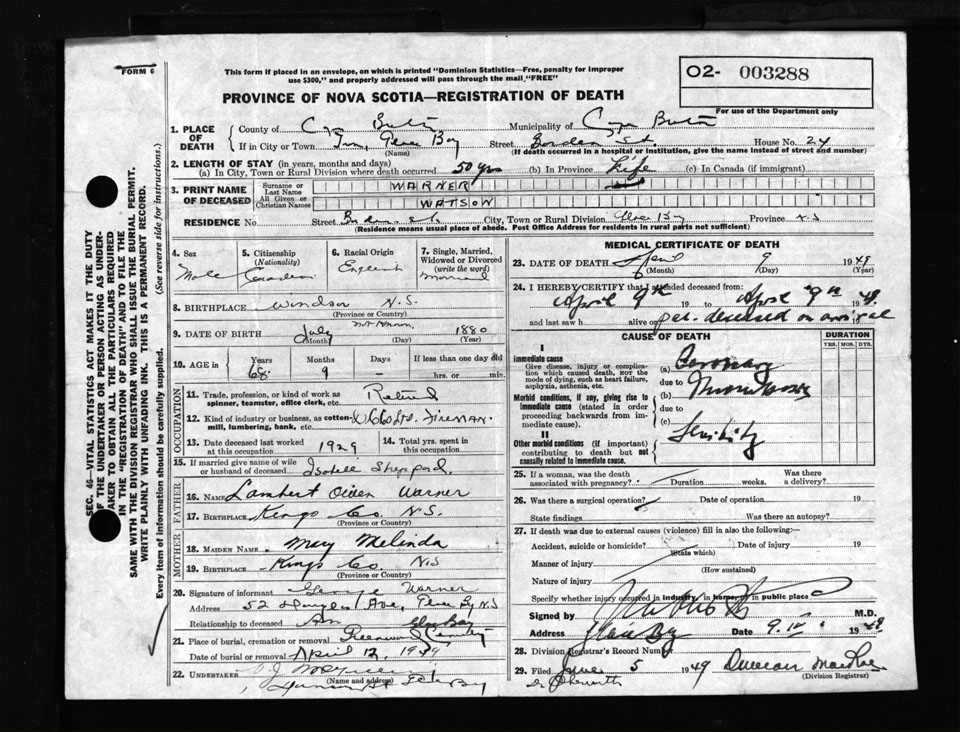 FORM 6
This form if placed in an envelope, on which is printed "Dominion Statistics—Free, penalty for improper
use $300," and properly addressed will pass through the mail "FREE"
O2- 003288
For use of the Department only
PROVINCE OF NOVA SCOTIA—REGISTRATION OF DEATH
1. PLACE OF DEATH
County of Cape Breton Municipality of Cape Breton
If in City or Town Glace Bay (Name) Street Borden St House No. 24
(If death occurred in a hospital or institution, give the name instead of street and number)
2. LENGTH OF STAY (in years, months and days)
(a) In City, Town or Rural Division where death occurred 50 yrs (b) In Province Life (c) In Canada (if immigrant)
3. PRINT NAME OF DECEASED
Surname or Last Name WARNER
All Given or Christian Names WATSON
RESIDENCE No. Street Borden St. City, Town or Rural Division Glace Bay Province N.S
(Residence means usual place of abode. Post Office Address for residents in rural parts not sufficient)
4. Sex Male
5. Citizenship (Nationality) Canadian
6. Racial Origin English
7. Single, Married, Widowed or Divorced (write the word) Married
8. BIRTHPLACE Windsor N.S.
(Province or Country)
9. DATE OF BIRTH July 1880
(Month) (Day) (Year)
10. AGE in Years 68 Months 9 Days - If less than one day old hrs. or min.
OCCUPATION
11. Trade, profession, or kind of work as spinner, teamster, office clerk, etc. Retired
12. Kind of industry or business, as cotton-mill, lumbering, bank, etc. FIREMAN
13. Date deceased last worked at this occupation 1929
14. Total yrs. spent in this occupation
15. If married give name of wife or husband of deceased Isabell Sheppard
FATHER
16. NAME Lambert Warner
17. BIRTHPLACE Kings Co. N.S.
(Province or Country)
MOTHER
18. MAIDEN NAME Mary Melinda
19. BIRTHPLACE Kings Co. N.S
(Province or Country)
20. Signature of informant George Warner
Address 52 Douglas Ave, Glace Bay N.S
Relationship to deceased Son
21. Place of burial, cremation or removal Greenwood Cemetery Glace Bay
Date of burial or removal April 12, 1949
22. UNDERTAKER
(Name and address)
MEDICAL CERTIFICATE OF DEATH
23. DATE OF DEATH April 9 1949
(Month) (Day) (Year)
24. I HEREBY CERTIFY that I attended deceased from:
April 9th 19 to April 9th 1949.
and last saw h alive on deceased on arrival
CAUSE OF DEATH
DURATION
YRS. MOS. DYS.
I
Immediate cause
Give disease, injury or complication which caused death, not the mode of dying, such as heart failure, asphyxia, asthenia, etc.
(a) Coronary
due to
Morbid conditions, if any, giving rise to immediate cause (stated in order proceeding backwards from immediate cause).
(b) Thrombosis
due to
(c)
II
Other morbid conditions (if important) contributing to death but not causally related to immediate cause.
Senility
25. If a woman, was the death associated with pregnancy? Duration weeks. Was there a delivery?
26. Was there a surgical operation? Date of operation 19
State findings Was there an autopsy?
27. If death was due to external causes (violence) fill in also the following:—
Accident, suicide or homicide? Date of injury 19
(State which)
Manner of injury
(How sustained)
Nature of injury
Specify whether injury occurred in industry, in home, or in public place
Signed by M.D.
Address Glace Bay Date 9.IV. 1949
28. Division Registrar's Record Number
29. Filed June 5 1949 Duncan
(Division Registrar)
SEC. 46—VITAL STATISTICS ACT MAKES IT THE DUTY
OF THE UNDERTAKER OR PERSON ACTING AS UNDERTAKER TO OBTAIN ALL THE PARTICULARS REQUIRED
IN THE "REGISTRATION OF DEATH" AND TO FILE THE
SAME WITH THE DIVISION REGISTRAR WHO SHALL ISSUE THE BURIAL PERMIT.
WRITE PLAINLY WITH UNFADING INK. THIS IS A PERMANENT RECORD.
Every item of information should be carefully supplied. (See reverse side for instructions.)